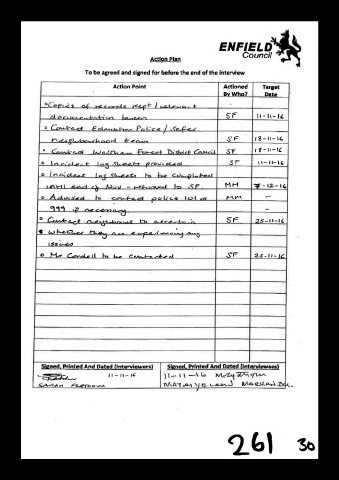 ENFIELD
Council
Action Plan
To be agreed and signed for before the end of the interview
Action Point Actioned By Who? Target Date
Copies of records kept / relevant
documentation SF 11-11-16
Contact Edmonton Police / Safer
neighbourhood team SF 18-11-16
Contact Waltham Forest District Council SF 18-11-16
Incident log sheets provided SF 11-11-16
Incident log sheets to be completed
until end of Nov - returned to SF MM 7-12-16
Advised to contact police 101 or MM -
999 if necessary -
Contact neighbours to ascertain SF 25-11-16
whether they are experiencing any
issues
Mr Cordell to be contacted SF 25-11-16
Signed, Printed And Dated (Interviewers) Signed, Printed And Dated (Interviewees)
11-11-16 11-11-16
SARAH
261 30